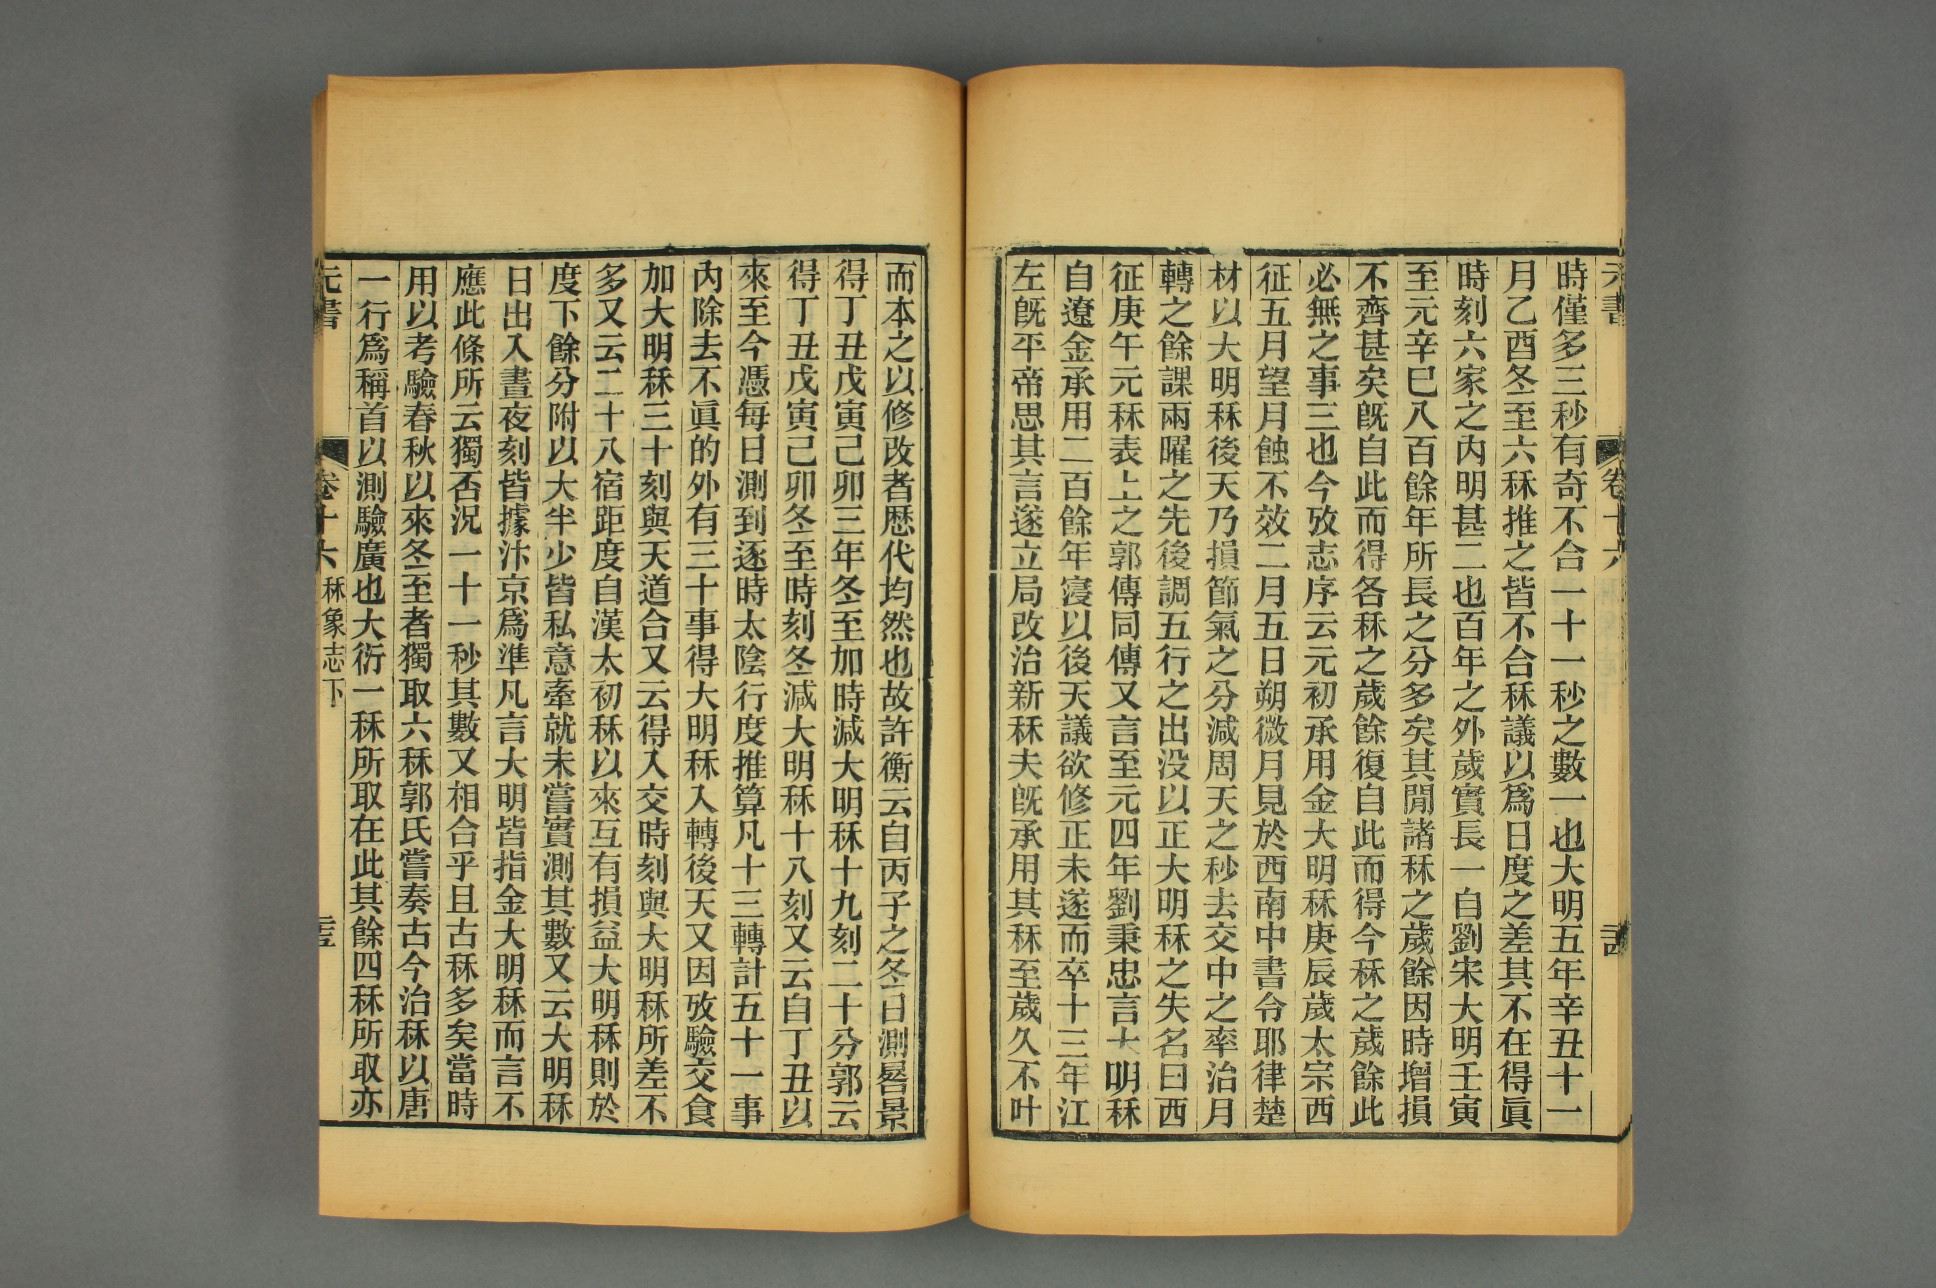 元書
卷十六
二十四
時僅多三秒有奇不合一十一秒之數一也大明五年辛丑十一
月乙酉冬至六秝推之皆不合秝議以爲日度之差其不在得眞
時刻六家之內明甚二也百年之外歲實長一自劉宋大明壬寅
至元辛巳八百餘年所長之分多矣其閒諸秝之歲餘因時增損
不齊甚矣旣自此而得各秝之歲餘復自此而得今秝之歲餘此
必無之事三也今攷志序云元初承用金大明秝庚辰歲太宗西
征五月望月蝕不效二月五日朔微月見於西南中書令耶律楚
材以大明秝後天乃損節氣之分減周天之秒去交中之率治月
轉之餘課兩曜之先後調五行之出没以正大明秝之失名曰西
征庚午元秝表上之郭傳同傳又言至元四年劉秉忠言大明秝
自遼金承用二百餘年寖以後天議欲修正未遂而卒十三年江
左旣平帝思其言遂立局改治新秝夫旣承用其秝至歲久不叶
而本之以修改者歷代均然也故許衡云自丙子之冬日測晷景
得丁丑戊寅己卯三年冬至加時減大明秝十九刻二十分郭云
得丁丑戊寅己卯冬至時刻冬減大明秝十八刻又云自丁丑以
來至今憑每日測到逐時太陰行度推算凡十三轉計五十一事
內除去不眞的外有三十事得大明秝入轉後天又因攷驗交食
加大明秝三十刻與天道合又云得入交時刻與大明秝所差不
多又云二十八宿距度自漢太初秝以來互有損益大明秝則於
度下餘分附以大半少皆私意牽就未嘗實測其數又云大明秝
日出入晝夜刻皆據汴京爲準凡言大明皆指金大明秝而言不
應此條所云獨否況一十一秒其數又相合乎且古秝多矣當時
用以考驗春秋以來冬至者獨取六秝郭氏嘗奏古今治秝以唐
一行爲稱首以測驗廣也大衍一秝所取在此其餘四秝所取亦
元書
卷十六
秝象志下
二十五